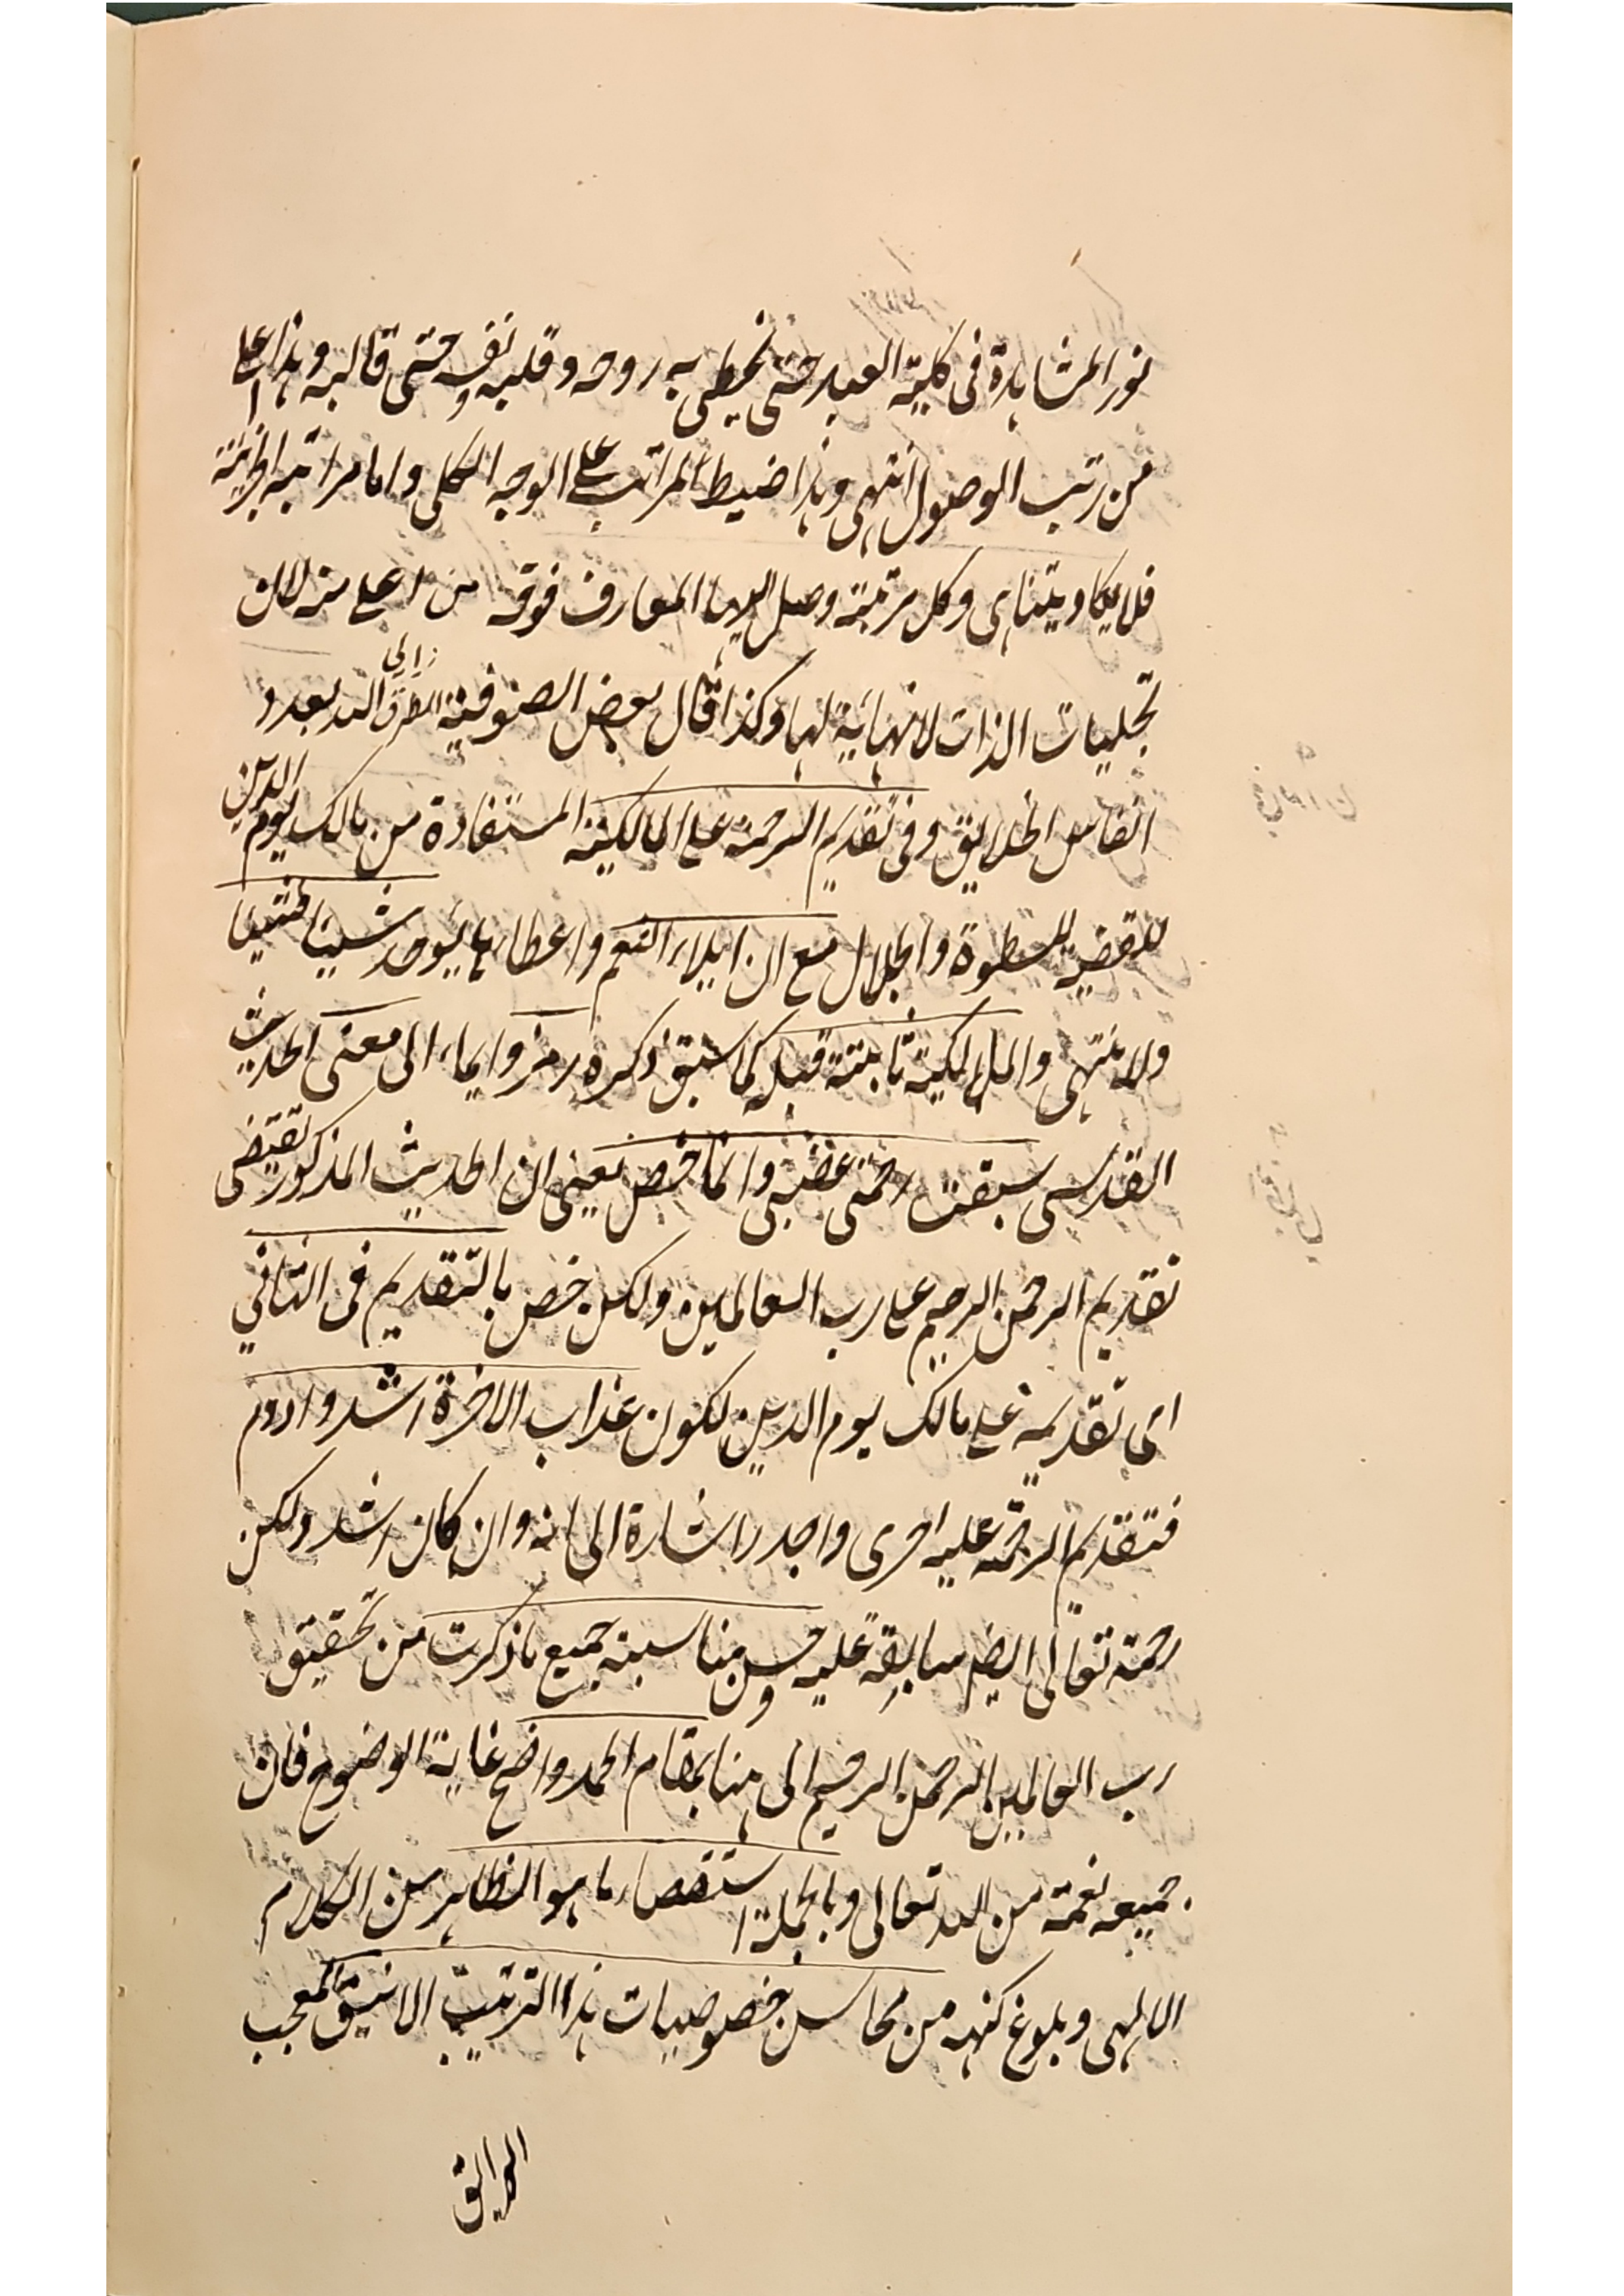 نور المشاهدة فى كلية العبد حتى يحظى به روحه وقلبه ونفسه حتى قالبه وهذا اعلى
من رتب الوصول انتهى وهذا ضبط المراتب على الوجه الكلى واما مراتبه الجزئية
فلا يكاد يتناهى وكل مرتبة وصل اليها العارف فوقه من اعلى منه لان
تجليات الذات لا نهاية لها وكذا قال بعض الصوفية الطرق الى الله بعدد
انفاس الخلايق وفى تقديم الرحمة على المالكية المستفادة من مالك يوم الدين
للسطوة والجلال مع ان ايلاء النعم واعطاءها يوجد شيئا فشيئا
ولا ينتهى والمالكية ثابتة قبله كما سبق ذكره رمز وايماء الى معنى الحديث
القدسى سبقت رحمتى غضبى وانما خص يعنى ان الحديث المذكور يقتضى
تقديم الرحمن الرحيم على رب العالمين ولكن خص بالتقديم فى الثانى
اى تقديمه على مالك يوم الدين لكون عذاب الاخرة اشد وادوم
فتقديم الرحمة عليه احرى واجدر اشارة الى انه وان كان اشد ولكن
رحمته تعالى ايضا سابقة عليه وحسن مناسبة جميع ما ذكرت من تحقيق
رب العالمين الرحمن الرحيم الى هنا بمقام الحمد واضح غاية الوضوح فان
جميعه نعمة من الله تعالى وبالجملة استقصاء ما هو الظاهر من الكلام
الالهى وبلوغ كنهه من محاسن خصوصيات هذا الترتيب الانيق المعجب